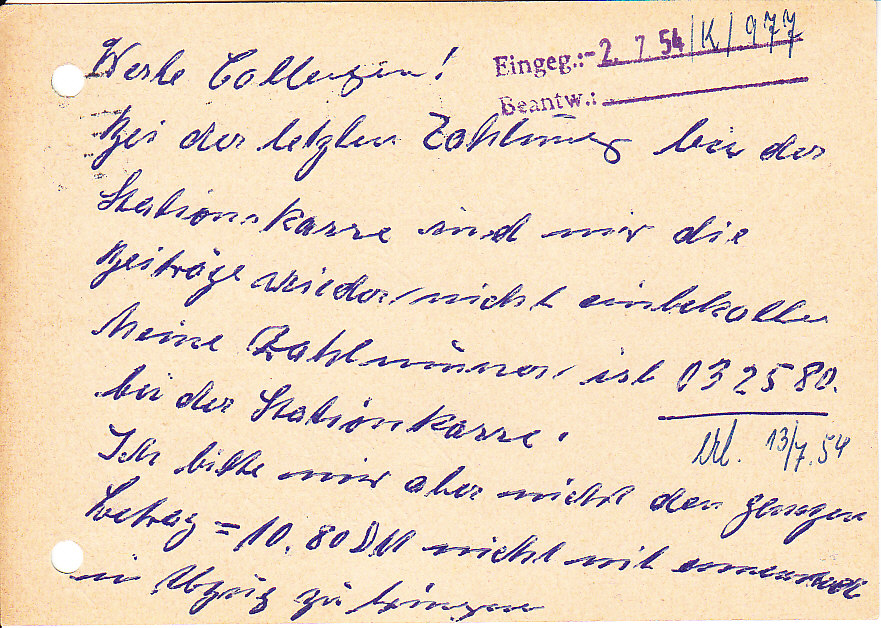 Eingeg.: - 2. 7. 54 /K/ 977
Beantw.:
Werte Collegen!
Bei der letzten Zahlung bei der
Stationskasse sind mir die
Beiträge wieder nicht einbehalten
Meine Zahlnummer ist 032580.
bei der Stationkasse.
erl. 13/7.54
Ich bitte mir aber nicht den ganzen
Betrag = 10.80 DM nicht mit
in Abzug zu bringen